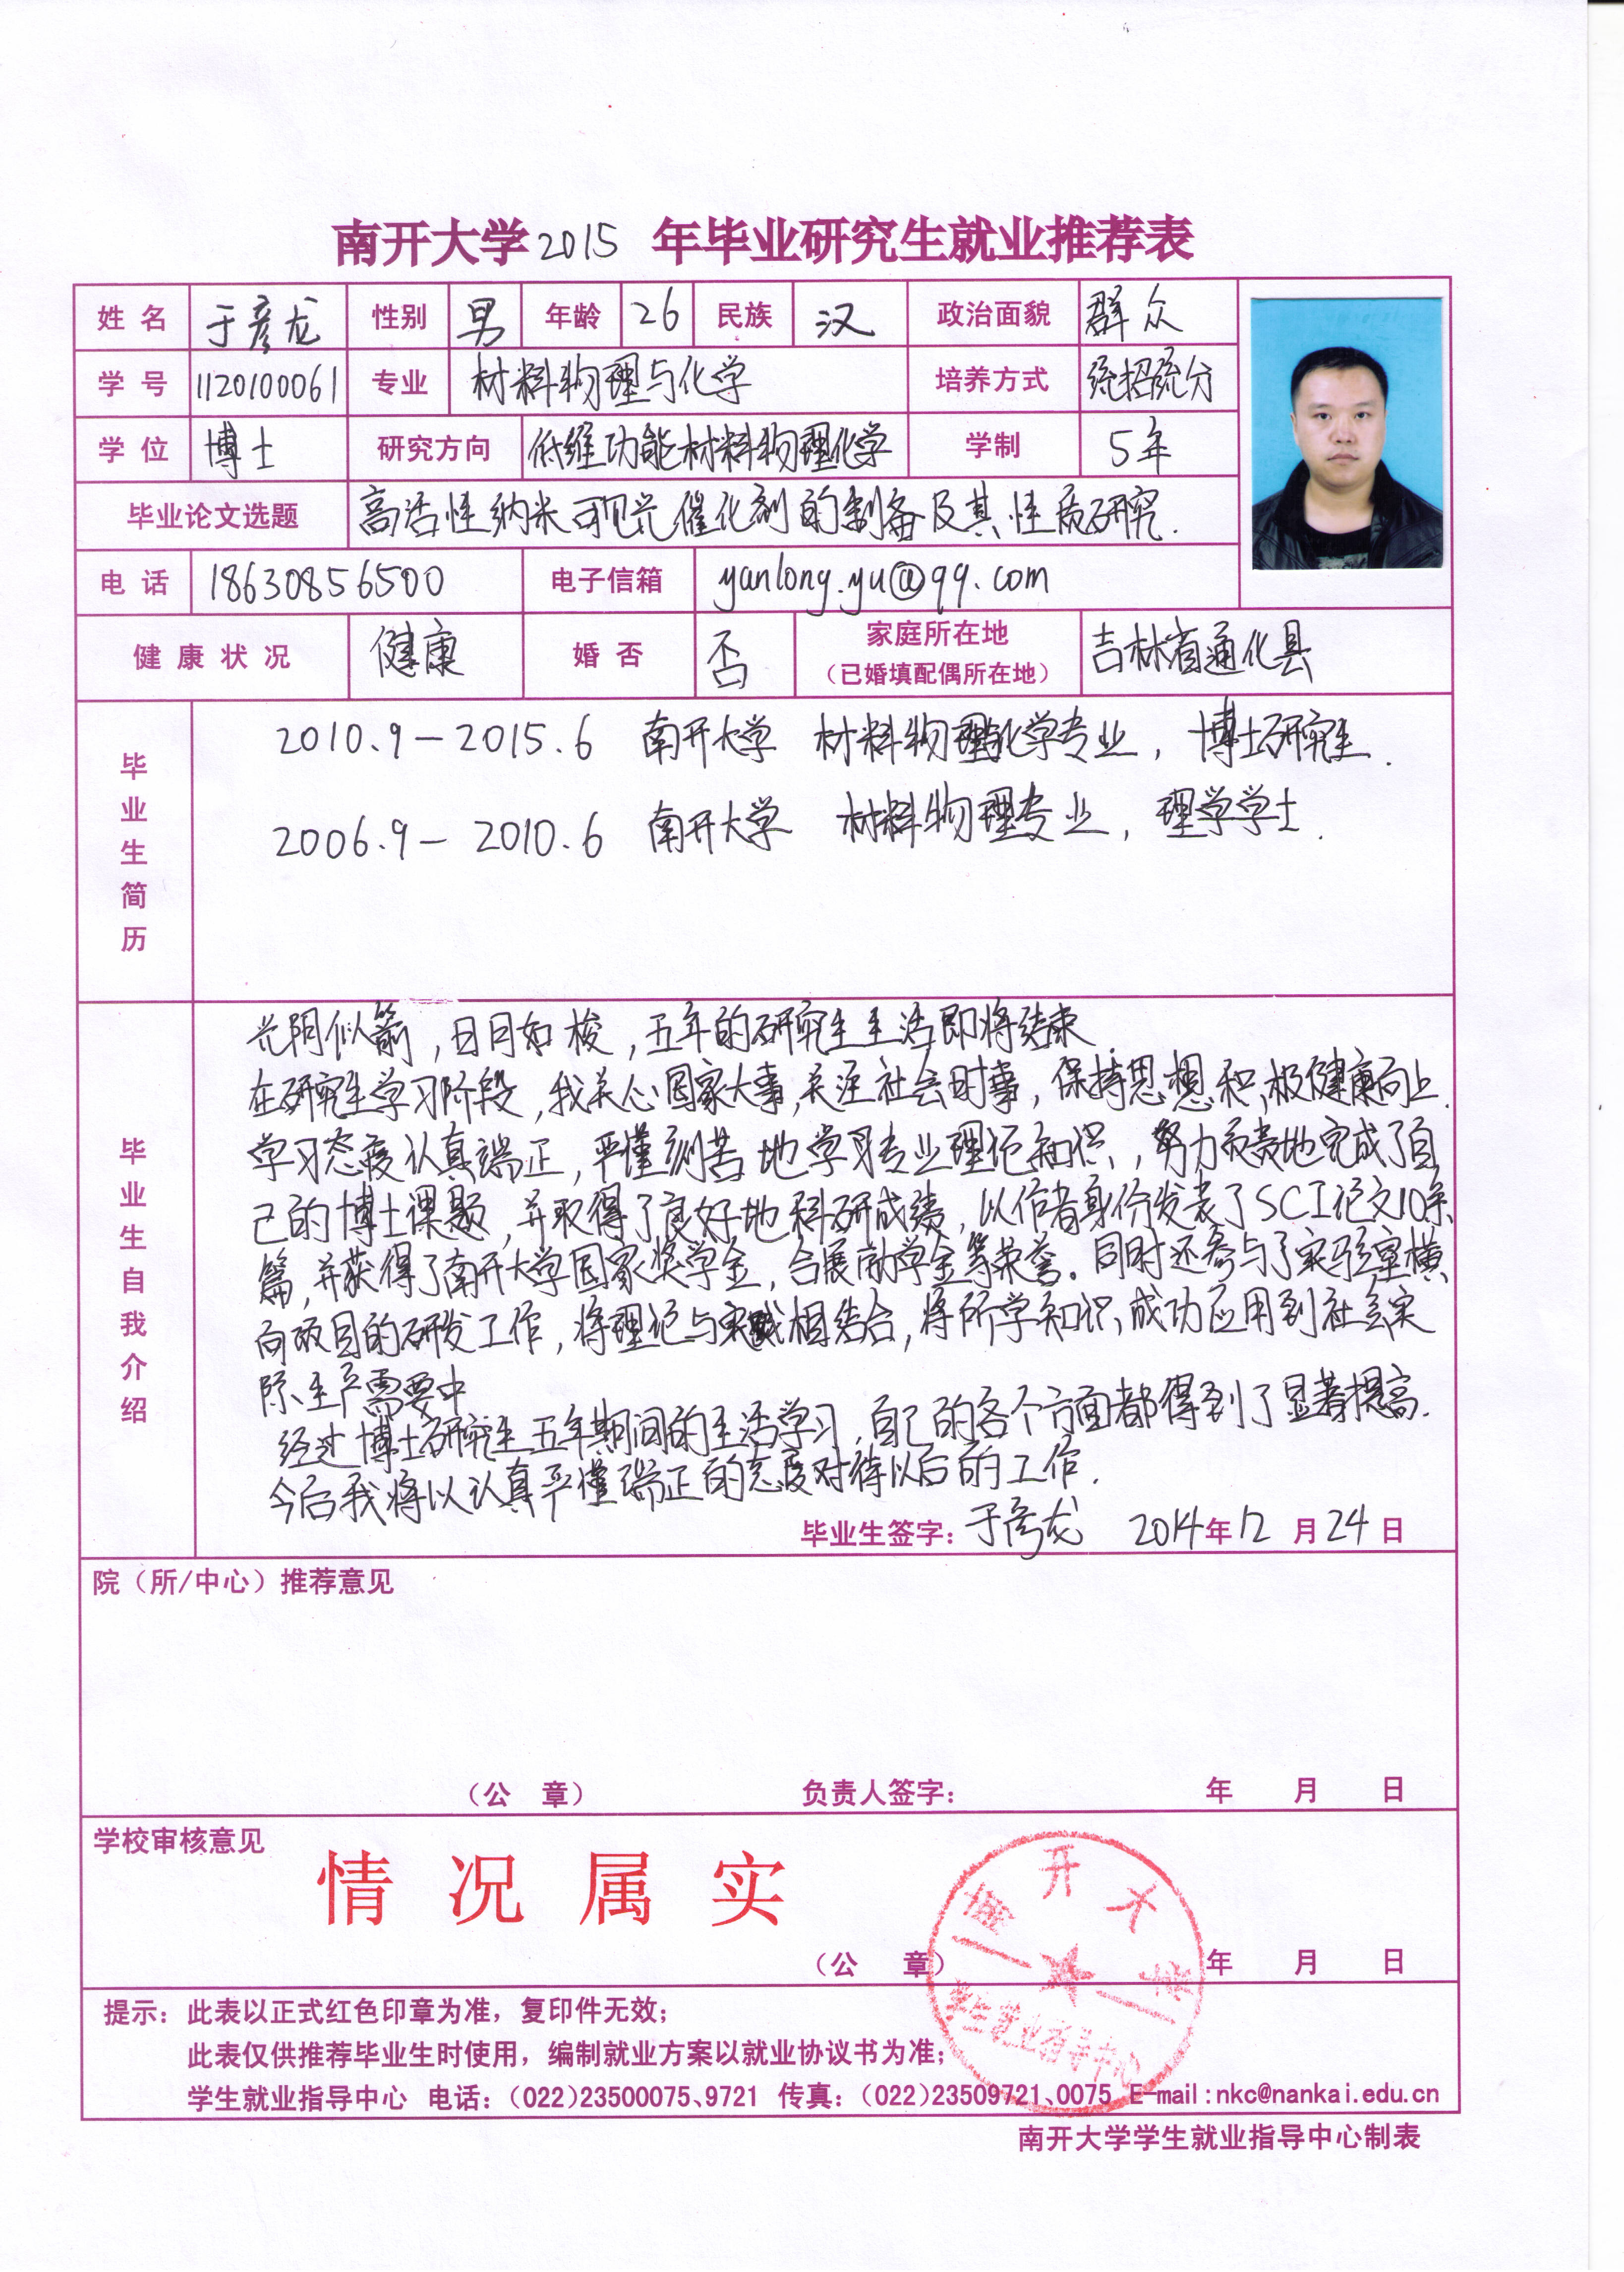 南开大学2015 年毕业研究生就业推荐表
姓 名 于彦龙 性别 男 年龄 26 民族 汉 政治面貌 群众
学 号 1120100061 专业 材料物理与化学 培养方式 统招统分
学 位 博士 研究方向 低维功能材料物理化学 学制 5年
毕业论文选题 高活性纳米可见光催化剂的制备及其性质研究.
电 话 18630856500 电子信箱 yanlong.yu@qq.com
健 康 状 况 健康 婚 否 否 家庭所在地 吉林省通化县
(已婚填配偶所在地)
毕业生简历
2010.9-2015.6 南开大学 材料物理与化学专业, 博士研究生.
2006.9- 2010.6 南开大学 材料物理专业, 理学学士.
毕业生自我介绍
光阴似箭,日月如梭,五年的研究生生活即将结束.
在研究生学习阶段,我关心国家大事,关注社会时事,保持思想积极健康向上.
学习态度认真端正,严谨刻苦地学习专业理论知识,努力负责地完成了自
己的博士课题,并取得了良好地科研成绩,以作者身份发表了SCI论文10余
篇,并获得了南开大学国家奖学金,合展助学金等荣誉。同时还参与了实验室横
向项目的研发工作,将理论与实践相结合,将所学知识,成功应用到社会实
际生产需要中
经过博士研究生五年期间的生活学习,自己的各个方面都得到了显著提高.
今后我将以认真严谨端正的态度对待以后的工作.
毕业生签字: 于彦龙 2014年12月24日
院(所/中心)推荐意见
(公 章) 负责人签字: 年 月 日
学校审核意见
情况属实
(公 章) 年 月 日
南开大学
学生就业指导中心
提示:此表以正式红色印章为准,复印件无效;
此表仅供推荐毕业生时使用,编制就业方案以就业协议书为准;
学生就业指导中心 电话:(022)23500075、9721 传真:(022)23509721、0075 E-mail:nkc@nankai.edu.cn
南开大学学生就业指导中心制表